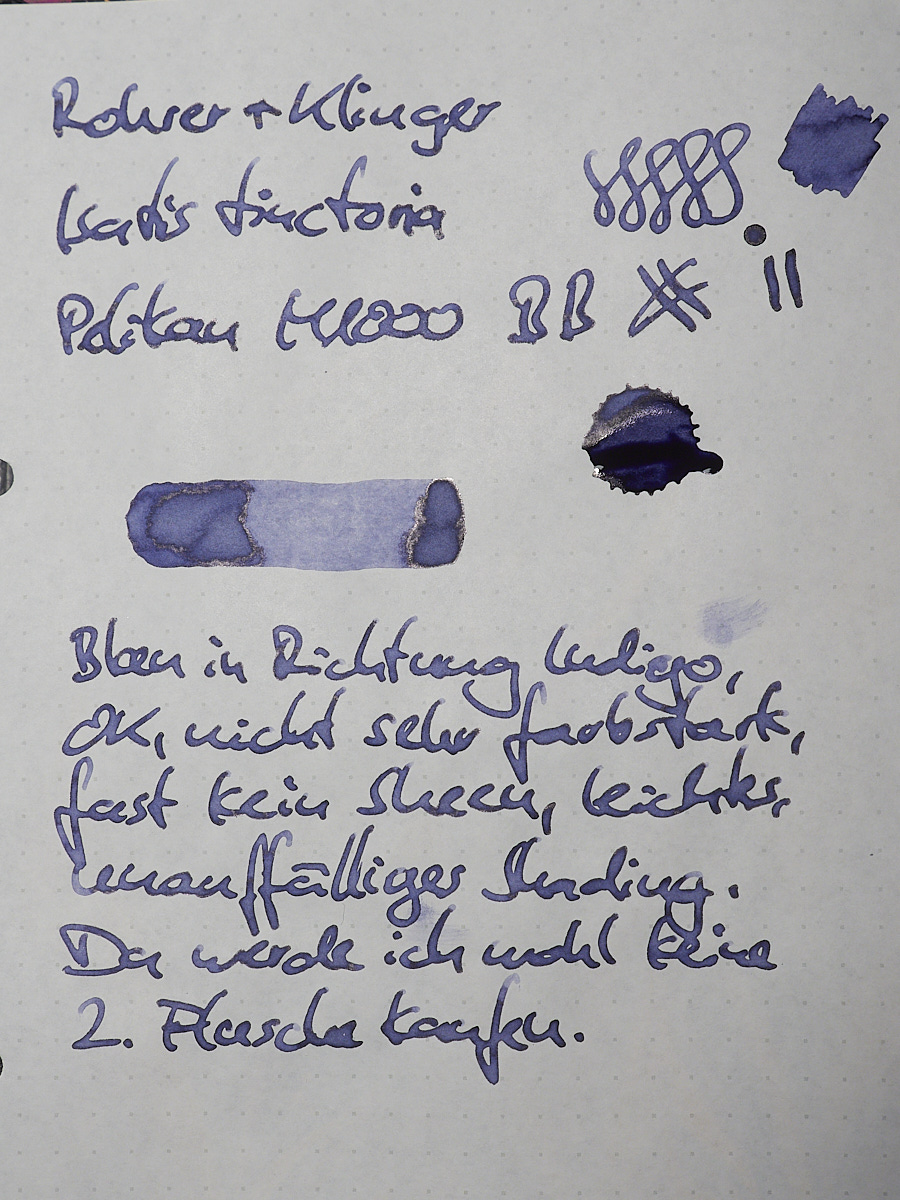 Rohrer + Klinger
Isatis tinctoria
Pelikan M800 BB
Blau in Richtung Indigo,
OK, nicht sehr farbstark,
fast kein Sheen, leichtes,
unauffälliger Shading.
Da werde ich wohl keine
2. Flasche kaufen.